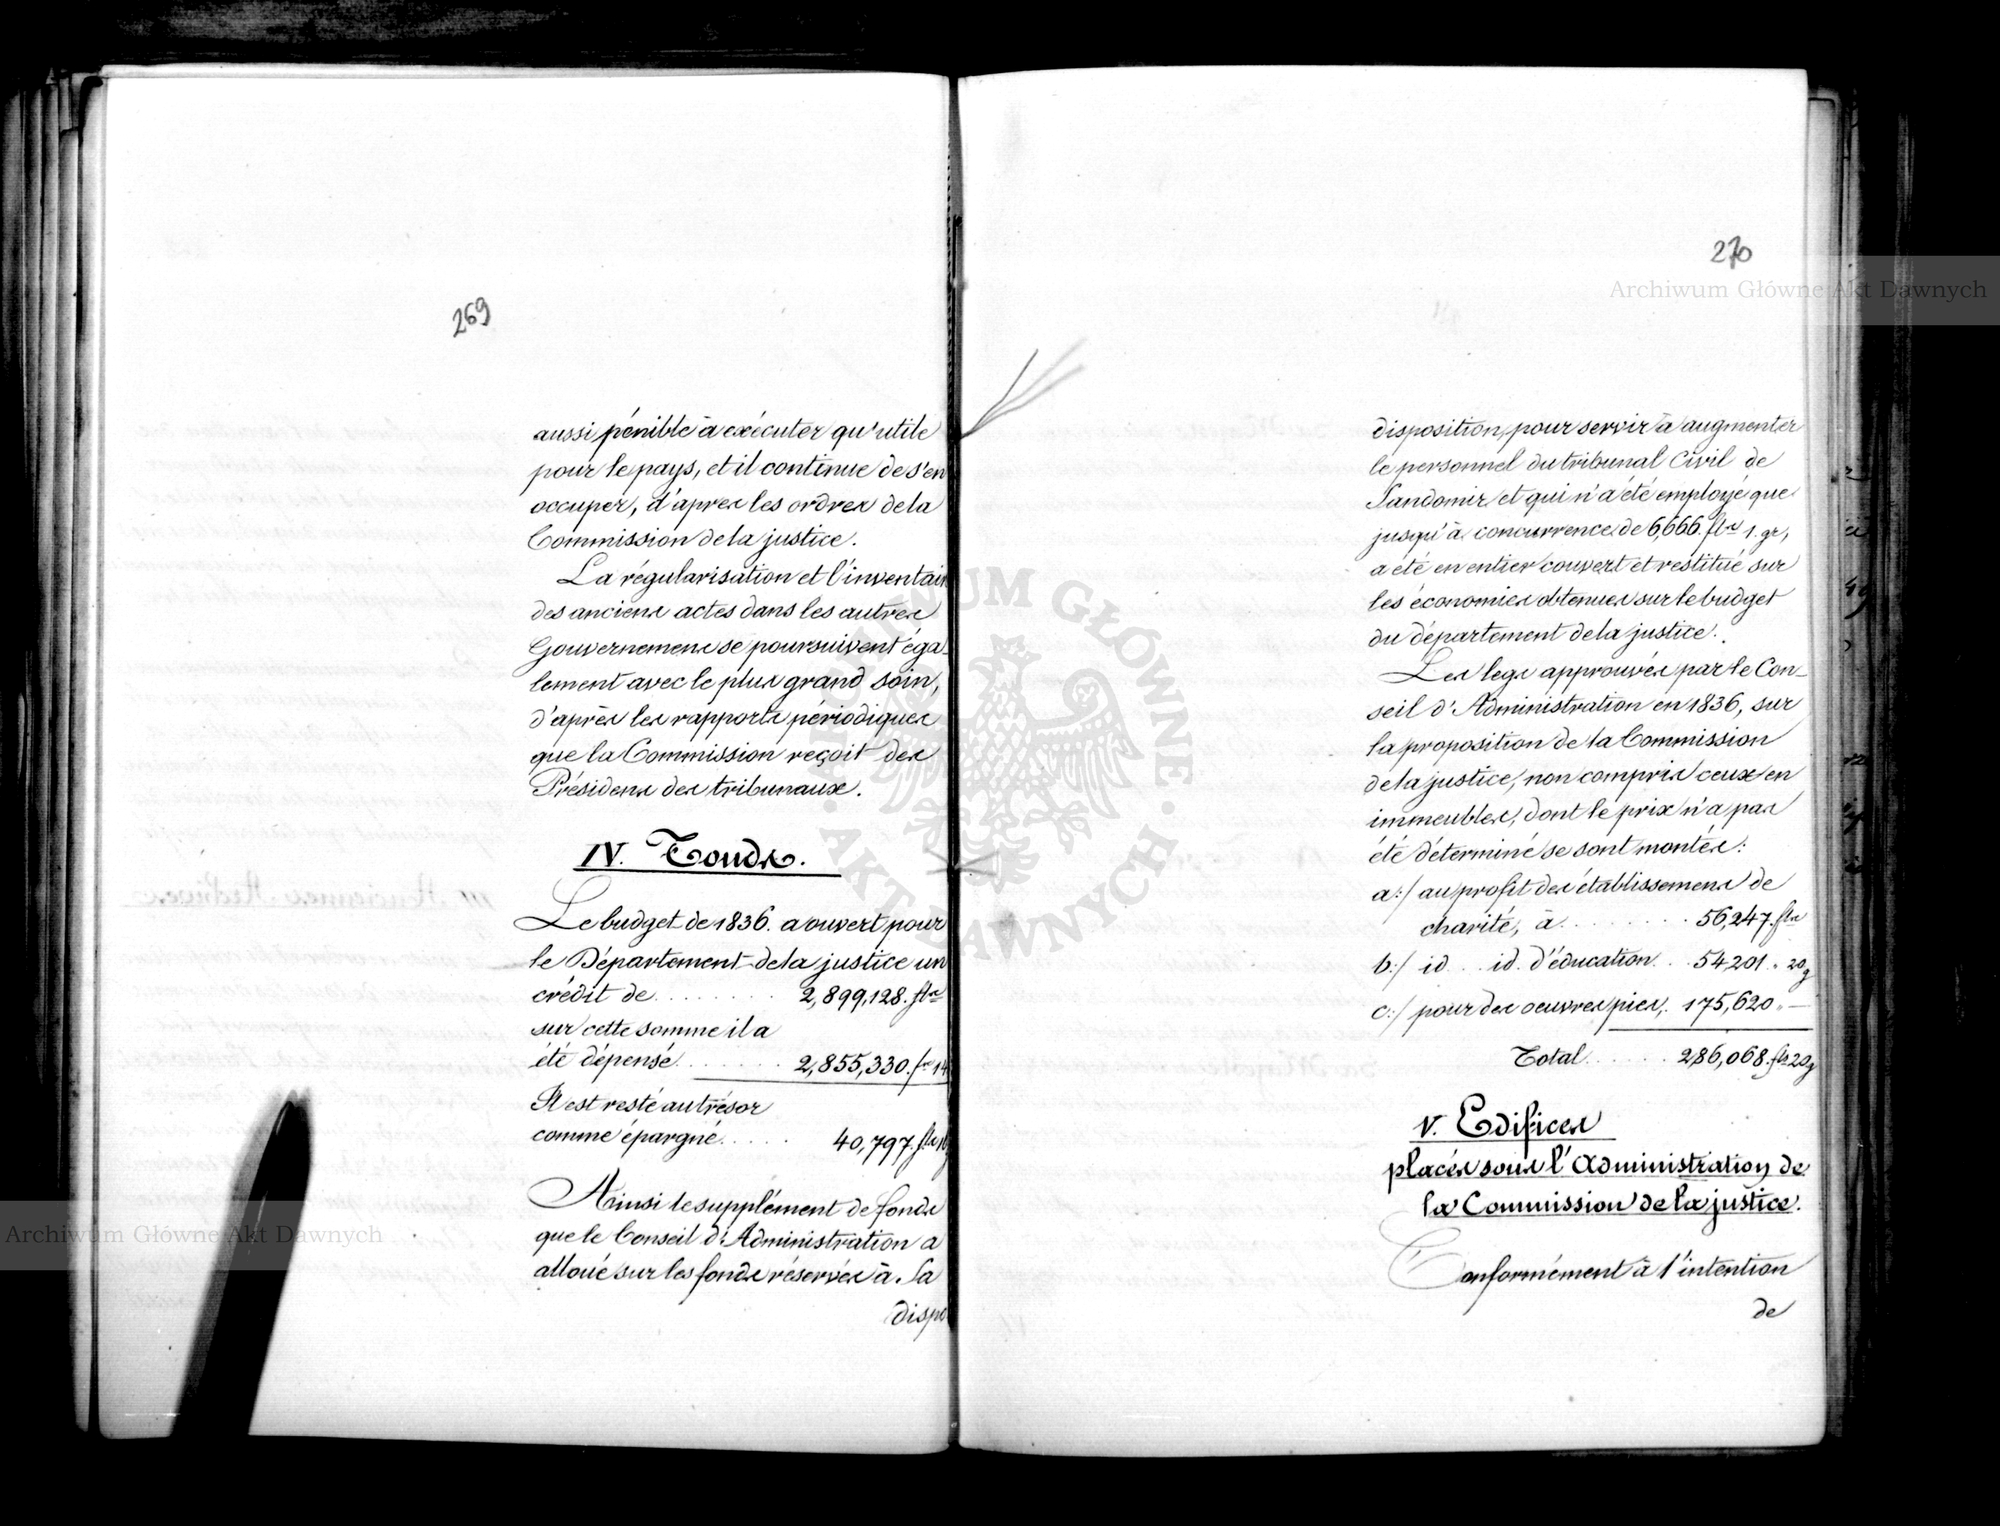 269
aussi pénible à exécuter qu'utile
pour le pays, et il continue de s'en
occuper, d'après les ordres de la
Commission de la justice.
La régularisation et l'inventai
des anciens actes dans les autres
Gouvernemens se poursuivent éga-
lement avec le plus grand soin,
d'après les rapports périodiques
que la Commission reçoit des
Présidens des tribunaux.
IV. Fonds.
Le budget de 1836. a ouvert pour
le Département de la justice un
crédit de ........ 2,899,128. fls
sur cette somme il a
été dépensé ....... 2,855,330. fls 14
Il est resté au trésor
comme épargné ..... 40,797. fls
Ainsi le supplément de fonds
que le Conseil d'Administration a
alloué sur les fonds réservés à sa
dispo
270
disposition, pour servir à augmenter
le personnel du tribunal Civil de
Sandomir et qui n'a été employé que
jusqu'à concurrence de 6,666. fls 1. gr,
a été en entier couvert et restitué sur
les économies obtenues sur le budget
du département de la justice.
Les legs approuvés par le Con-
seil d'Administration en 1836, sur
la proposition de la Commission
de la justice, non compris ceux en
immeubles, dont le prix n'a pas
été déterminé se sont montés:
a:/ au profit des établissemens de
charité, à ........ 56,247. fls
b:/ id... id. d'éducation... 54,201. „ 20 g
c:/ pour des oeuvres pies,. 175,620. „ —
Total ..... 286,068. fls 20 g
V. Edifices
placés sous l'Administration de
la Commission de la justice.
Conformément à l'intention
de
Archiwum Główne Akt Dawnych
Archiwum Główne Akt Dawnych
ARCHIWUM GŁÓWNE
AKT DAWNYCH